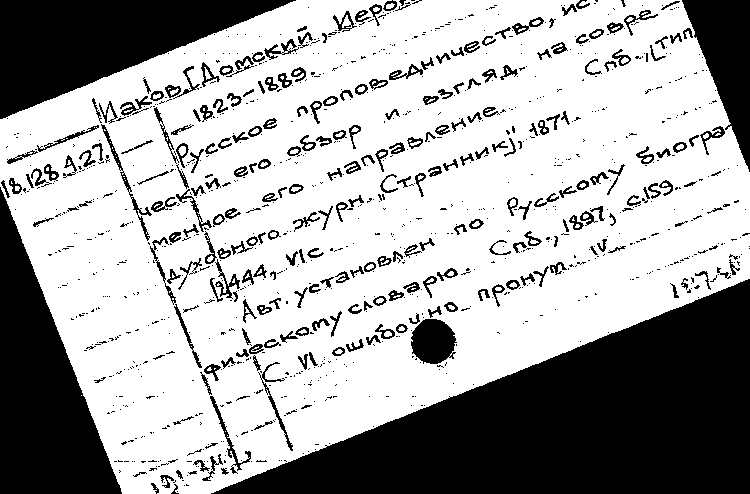 Иаков [Домский, Иеро
1823-1889.
18.128.4.27.
Русское проповедничество, ист
ческий его обзор и взгляд на совре-
менное его направление. Спб., [тип.
духовного журн. „Странник"], 1871.
[2], 444, VI с.
Авт. установлен по Русскому биогра-
фическому словарю. Спб., 1897, с. 159.
С. VI ошибочно пронум. IV